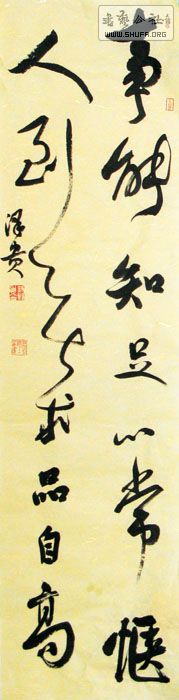 書藝公社
WWW.SHUFA.ORG
事能知足心常愜
人到无求品自高